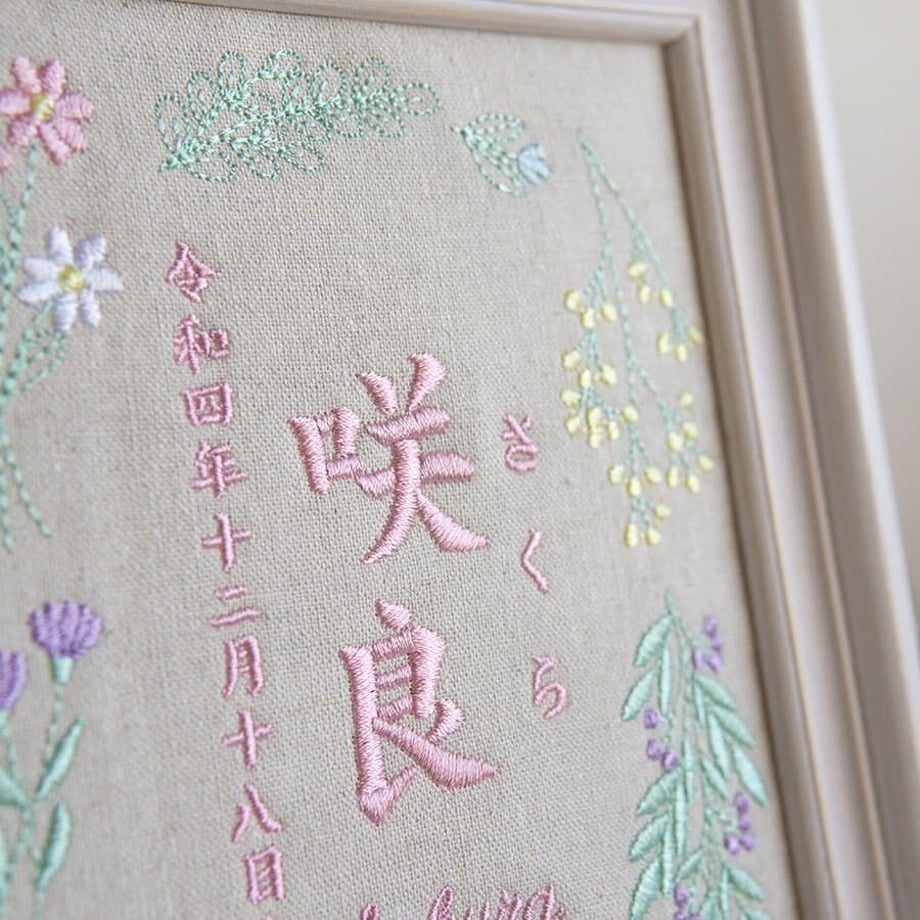 さくら
咲良
令和四年十二月十八日